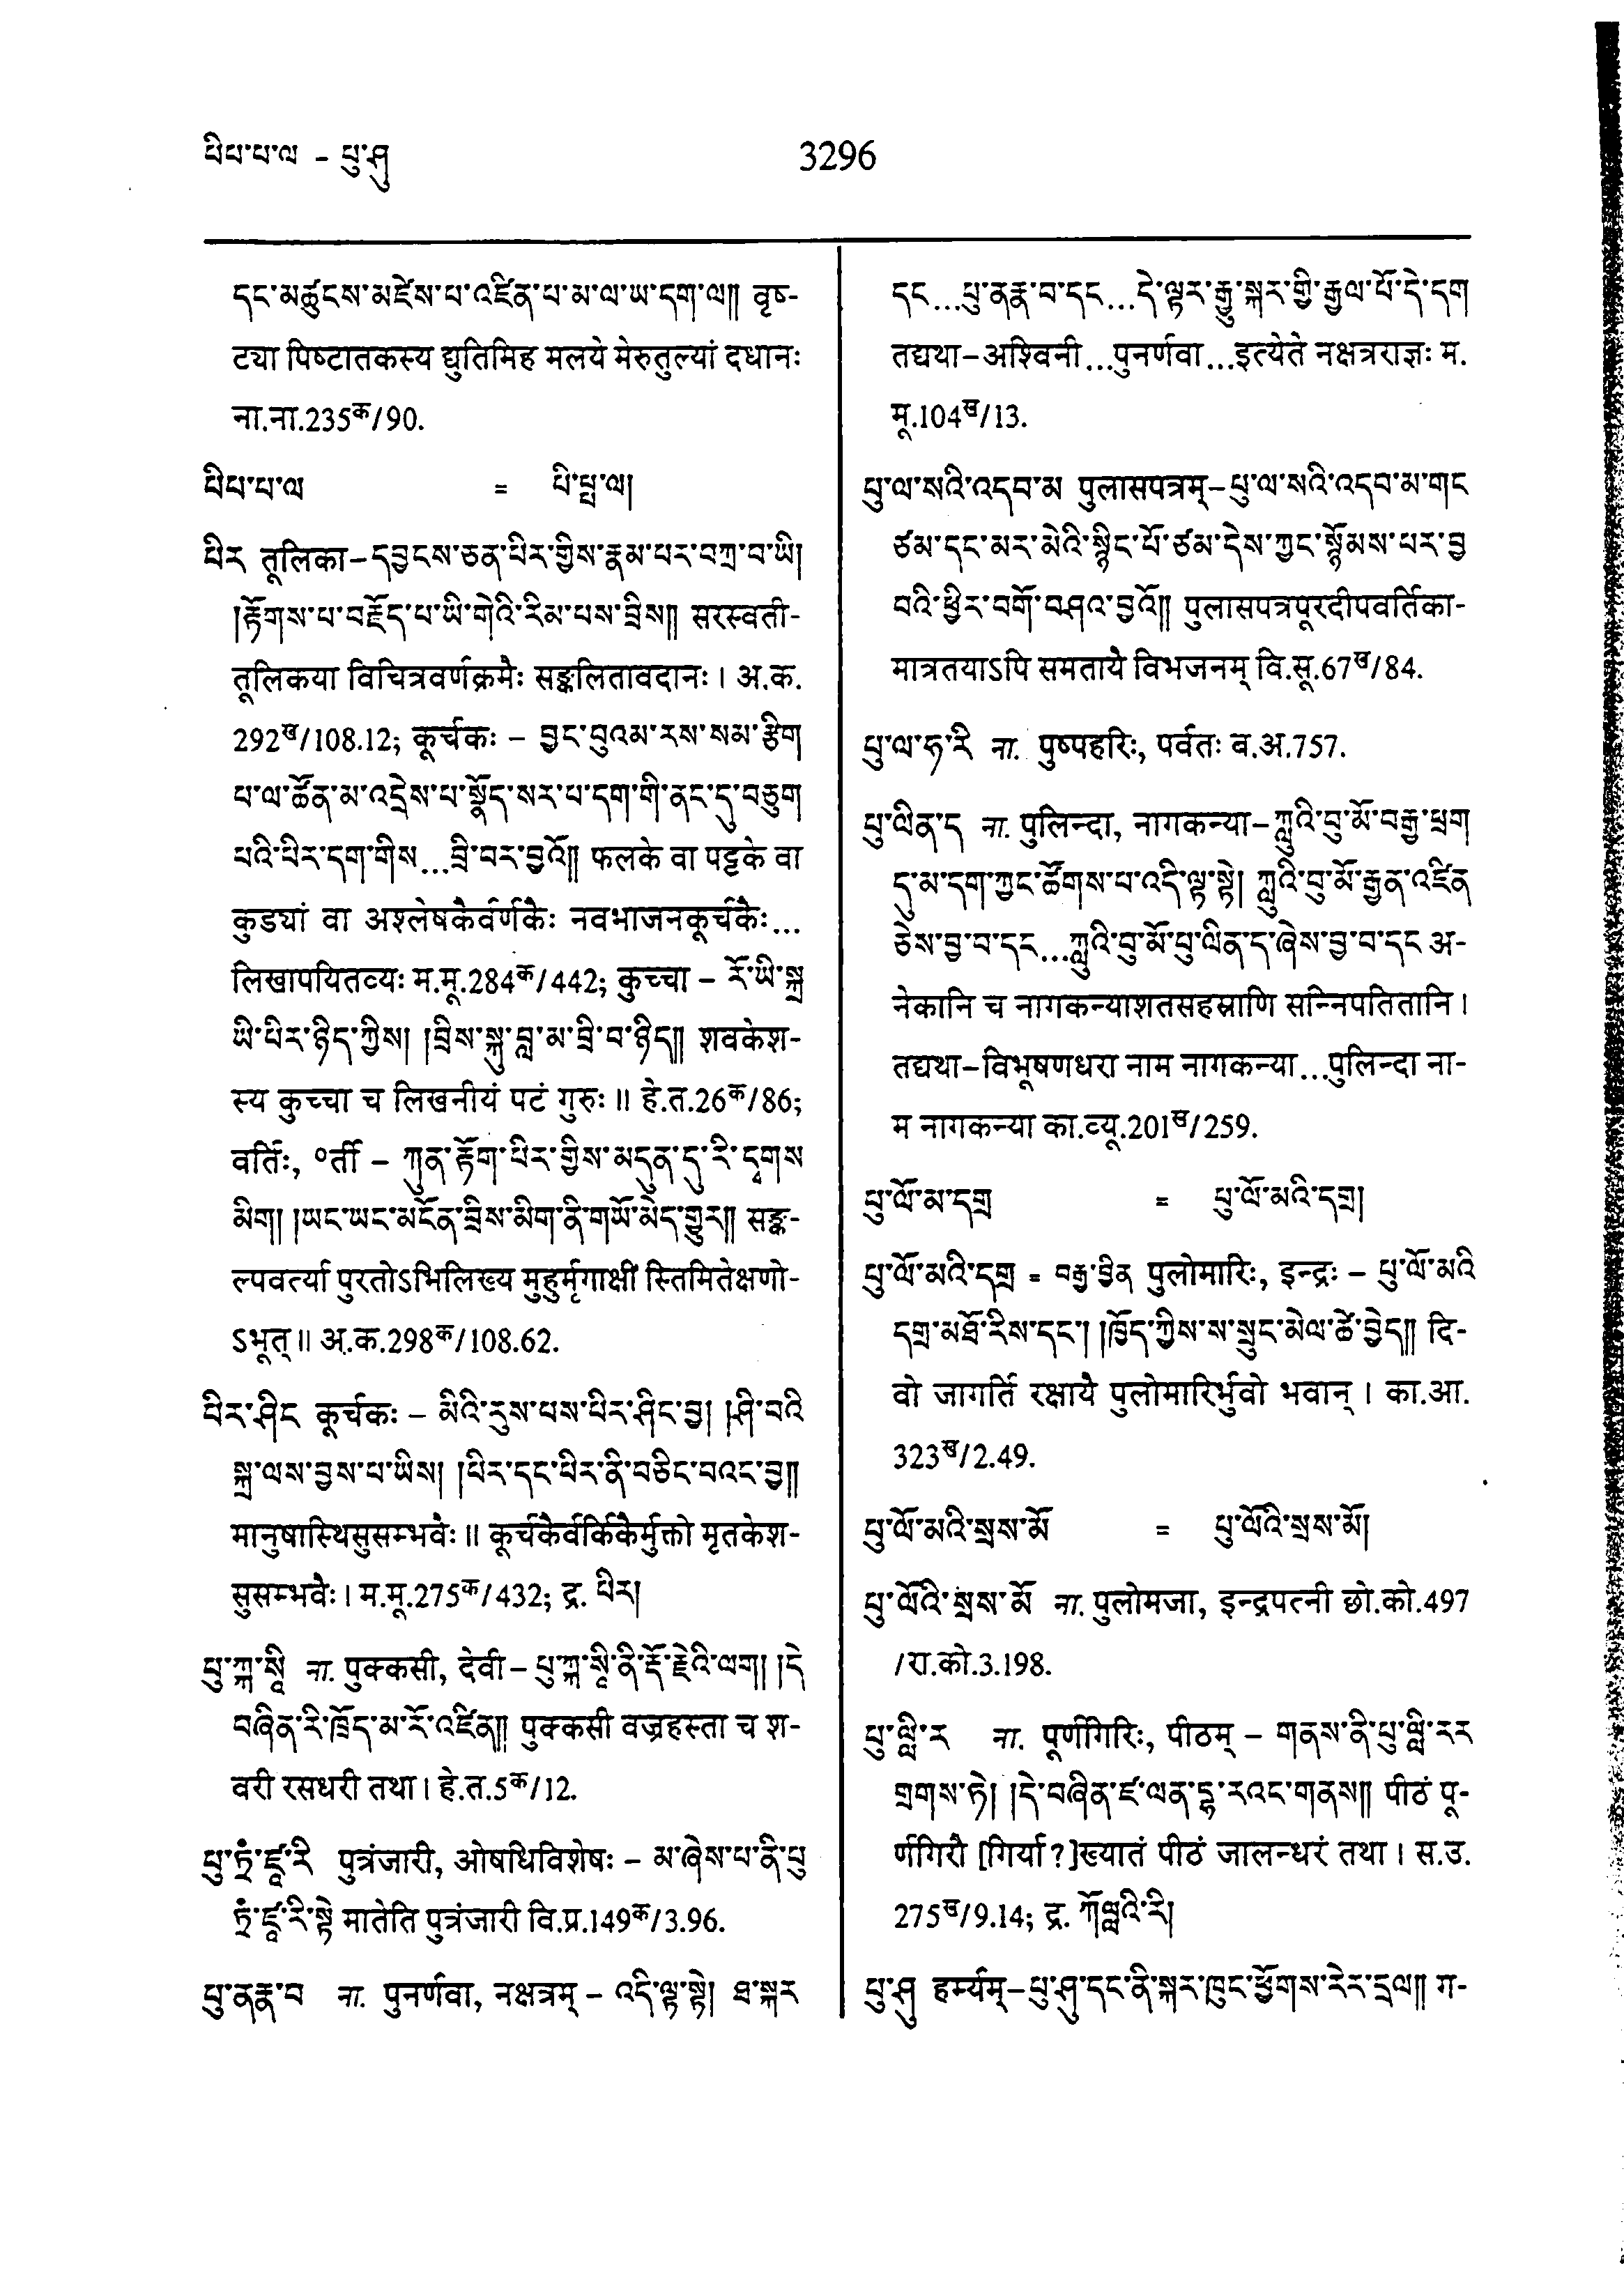 པིཔ་པ་ལ – པུ་ཤུ
3296
དང་མཚུངས་མཛེས་པ་འཛིན་པ་མ་ལ་ཡ་དག་ལ།། वृष-
ट्या पिष्टातकस्य द्युतिमिह मलये मेरुतुल्यां दधानः
ना.ना.235क/90.
པིཔ་པ་ལ = པི་པྤ་ལ།
པིར तूलिका–དབྱངས་ཅན་པིར་གྱིས་རྣམ་པར་བཀྲ་བ་ཡི།
།རྟོགས་པ་བརྗོད་པ་ཡི་གེའི་རིམ་པས་བྲིས།། सरस्वती-
तूलिकया विचित्रवर्णक्रमैः सङ्कलितावदानः। अ.क.
292ख/108.12; कूर्चकः – བྱང་བུའམ་རས་སམ་རྩིག
པ་ལ་ཚོན་མ་འདྲེས་པ་སྣོད་སར་པ་དག་གི་ནང་དུ་བཅུག
པའི་པིར་དག་གིས...བྲི་བར་བྱའོ།། फलके वा पट्टके वा
कुड्यां वा अश्लेषकैर्वर्णकैः नवभाजनकूर्चकैः...
लिखापयितव्यः म.मू.284क/442; कुच्चा – རོ་ཡི་སྐྲ
ཡི་པིར་ཉིད་ཀྱིས། །བྲིས་སྐུ་བླ་མ་བྲི་བ་ཉིད།། शवकेश-
स्य कुच्चा च लिखनीयं पटं गुरुः॥ हे.त.26क/86;
वर्तिः, ॰र्ती – ཀུན་རྟོག་པིར་གྱིས་མདུན་དུ་རི་དྭགས
མིག། །ཡང་ཡང་མངོན་བྲིས་མིག་ནི་གཡོ་མེད་གྱུར།། सङ्क-
ल्पवर्त्या पुरतोऽभिलिख्य मुहुर्मृगाक्षीं स्तिमितेक्षणो-
ऽभूत्॥ अ.क.298क/108.62.
པིར་ཤིང कूर्चकः – མིའི་རུས་པས་པིར་ཤིང་བྱ། །ཤི་བའི
སྐྲ་ལས་བྱས་པ་ཡིས། །པིར་དང་པིར་ནི་བཅིང་བའང་བྱ།།
मानुषास्थिसुसम्भवैः॥ कूर्चकैर्वर्किकैर्मुक्तो मृतकेश-
सुसम्भवैः। म.मू.275क/432; द्र. པིར།
པུ་ཀྐ་སཱི ना. पुक्कसी, देवी–པུ་ཀྐ་སཱི་ནི་རྡོ་རྗེའི་ལག། །དེ
བཞིན་རི་ཁྲོད་མ་རོ་འཛིན།། पुक्कसी वज्रहस्ता च श-
वरी रसधरी तथा। हे.त.5क/12.
པུ་ཏྲཾ་ཛཱ་རི पुत्रंजारी, ओषधिविशेषः – མ་ཞེས་པ་ནི་པུ
ཏྲཾ་ཛཱ་རི་སྟེ मातेति पुत्रंजारी वि.प्र.149क/3.96.
པུ་ནརྣ་བ ना. पुनर्णवा, नक्षत्रम् – འདི་ལྟ་སྟེ། ཐ་སྐར
དང...པུ་ནརྣ་བ་དང...དེ་ལྟར་རྒྱུ་སྐར་གྱི་རྒྱལ་པོ་དེ་དག
तद्यथा–अश्विनी...पुनर्णवा...इत्येते नक्षत्रराज्ञः म.
मू.104ख/13.
པུ་ལ་སའི་འདབ་མ पुलासपत्रम्–པུ་ལ་སའི་འདབ་མ་གང
ཙམ་དང་མར་མེའི་སྙིང་པོ་ཙམ་དེས་ཀྱང་སྙོམས་པར་བྱ
བའི་ཕྱིར་བགོ་བཤའ་བྱའོ།། पुलासपत्रपूरदीपवर्तिका-
मात्रतयाऽपि समतायै विभजनम् वि.सू.67ख/84.
པུ་ལ་ཧ་རི ना. पुष्पहरिः, पर्वतः व.अ.757.
པུ་ལིན་ད ना. पुलिन्दा, नागकन्या–ཀླུའི་བུ་མོ་བརྒྱ་ཕྲག
དུ་མ་དག་ཀྱང་ཚོགས་པ་འདི་ལྟ་སྟེ། ཀླུའི་བུ་མོ་རྒྱན་འཛིན
ཅེས་བྱ་བ་དང...ཀླུའི་བུ་མོ་པུ་ལིན་ད་ཞེས་བྱ་བ་དང अ-
नेकानि च नागकन्याशतसहस्राणि सन्निपतितानि।
तद्यथा–विभूषणधरा नाम नागकन्या...पुलिन्दा ना-
म नागकन्या का.व्यू.201ख/259.
པུ་ལོ་མ་དགྲ = པུ་ལོ་མའི་དགྲ།
པུ་ལོ་མའི་དགྲ = བརྒྱ་བྱིན पुलोमारिः, इन्द्रः – པུ་ལོ་མའི
དགྲ་མཐོ་རིས་དང་། །ཁྱོད་ཀྱིས་ས་སྲུང་མེལ་ཚེ་བྱེད།། दि-
वो जागर्ति रक्षायै पुलोमारिर्भुवो भवान्। का.आ.
323ख/2.49.
པུ་ལོ་མའི་སྲས་མོ = པུ་ལོའི་སྲས་མོ།
པུ་ལོའི་སྲས་མོ ना. पुलोमजा, इन्द्रपत्नी छो.को.497
/रा.को.3.198.
པུ་ལླི་ར ना. पूर्णगिरिः, पीठम् – གནས་ནི་པུ་ལླི་རར
གྲགས་ཏེ། །དེ་བཞིན་ཛ་ལན་དྷ་རའང་གནས།། पीठं पू-
र्णगिरौ [गिर्या?]ख्यातं पीठं जालन्धरं तथा। स.उ.
275ख/9.14; द्र. ཀོལླའི་རི།
པུ་ཤུ हर्म्यम्–པུ་ཤུ་དང་ནི་སྐར་ཁུང་ཕྱོགས་རེར་དྲལ།། ग-